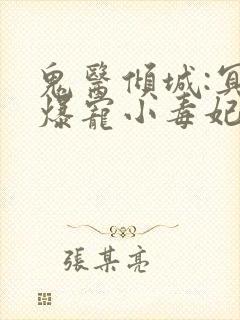 鬼醫傾城:冥
爆寵小毒妃
張某亮